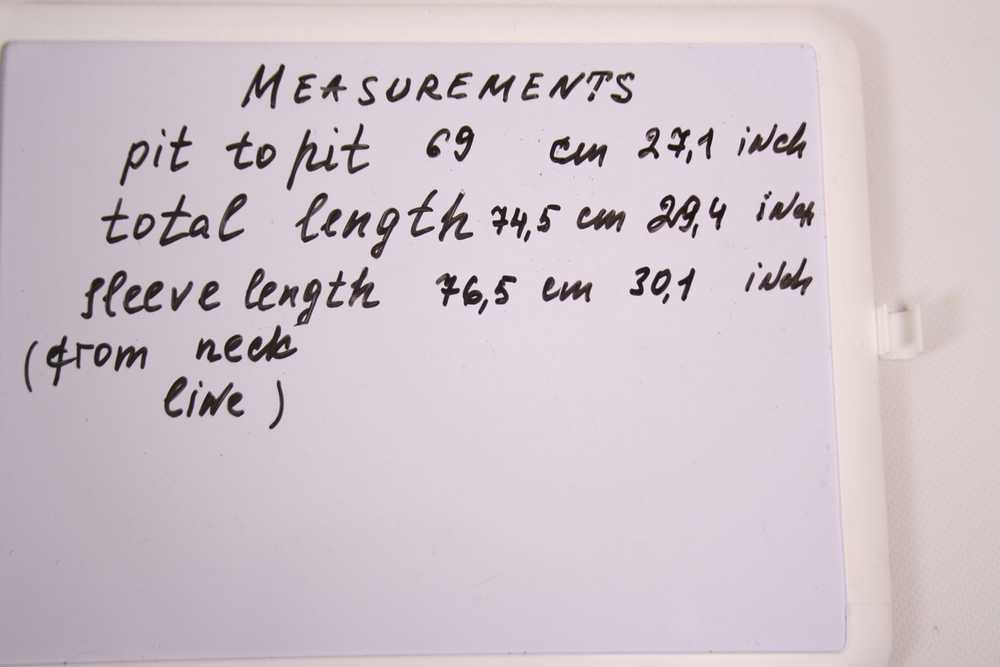 MEASUREMENTS
pit to pit 69 cm 27,1 inch
total length 74,5 cm 29,4 inch
sleeve length 76,5 cm 30,1 inch
(from neck
line)